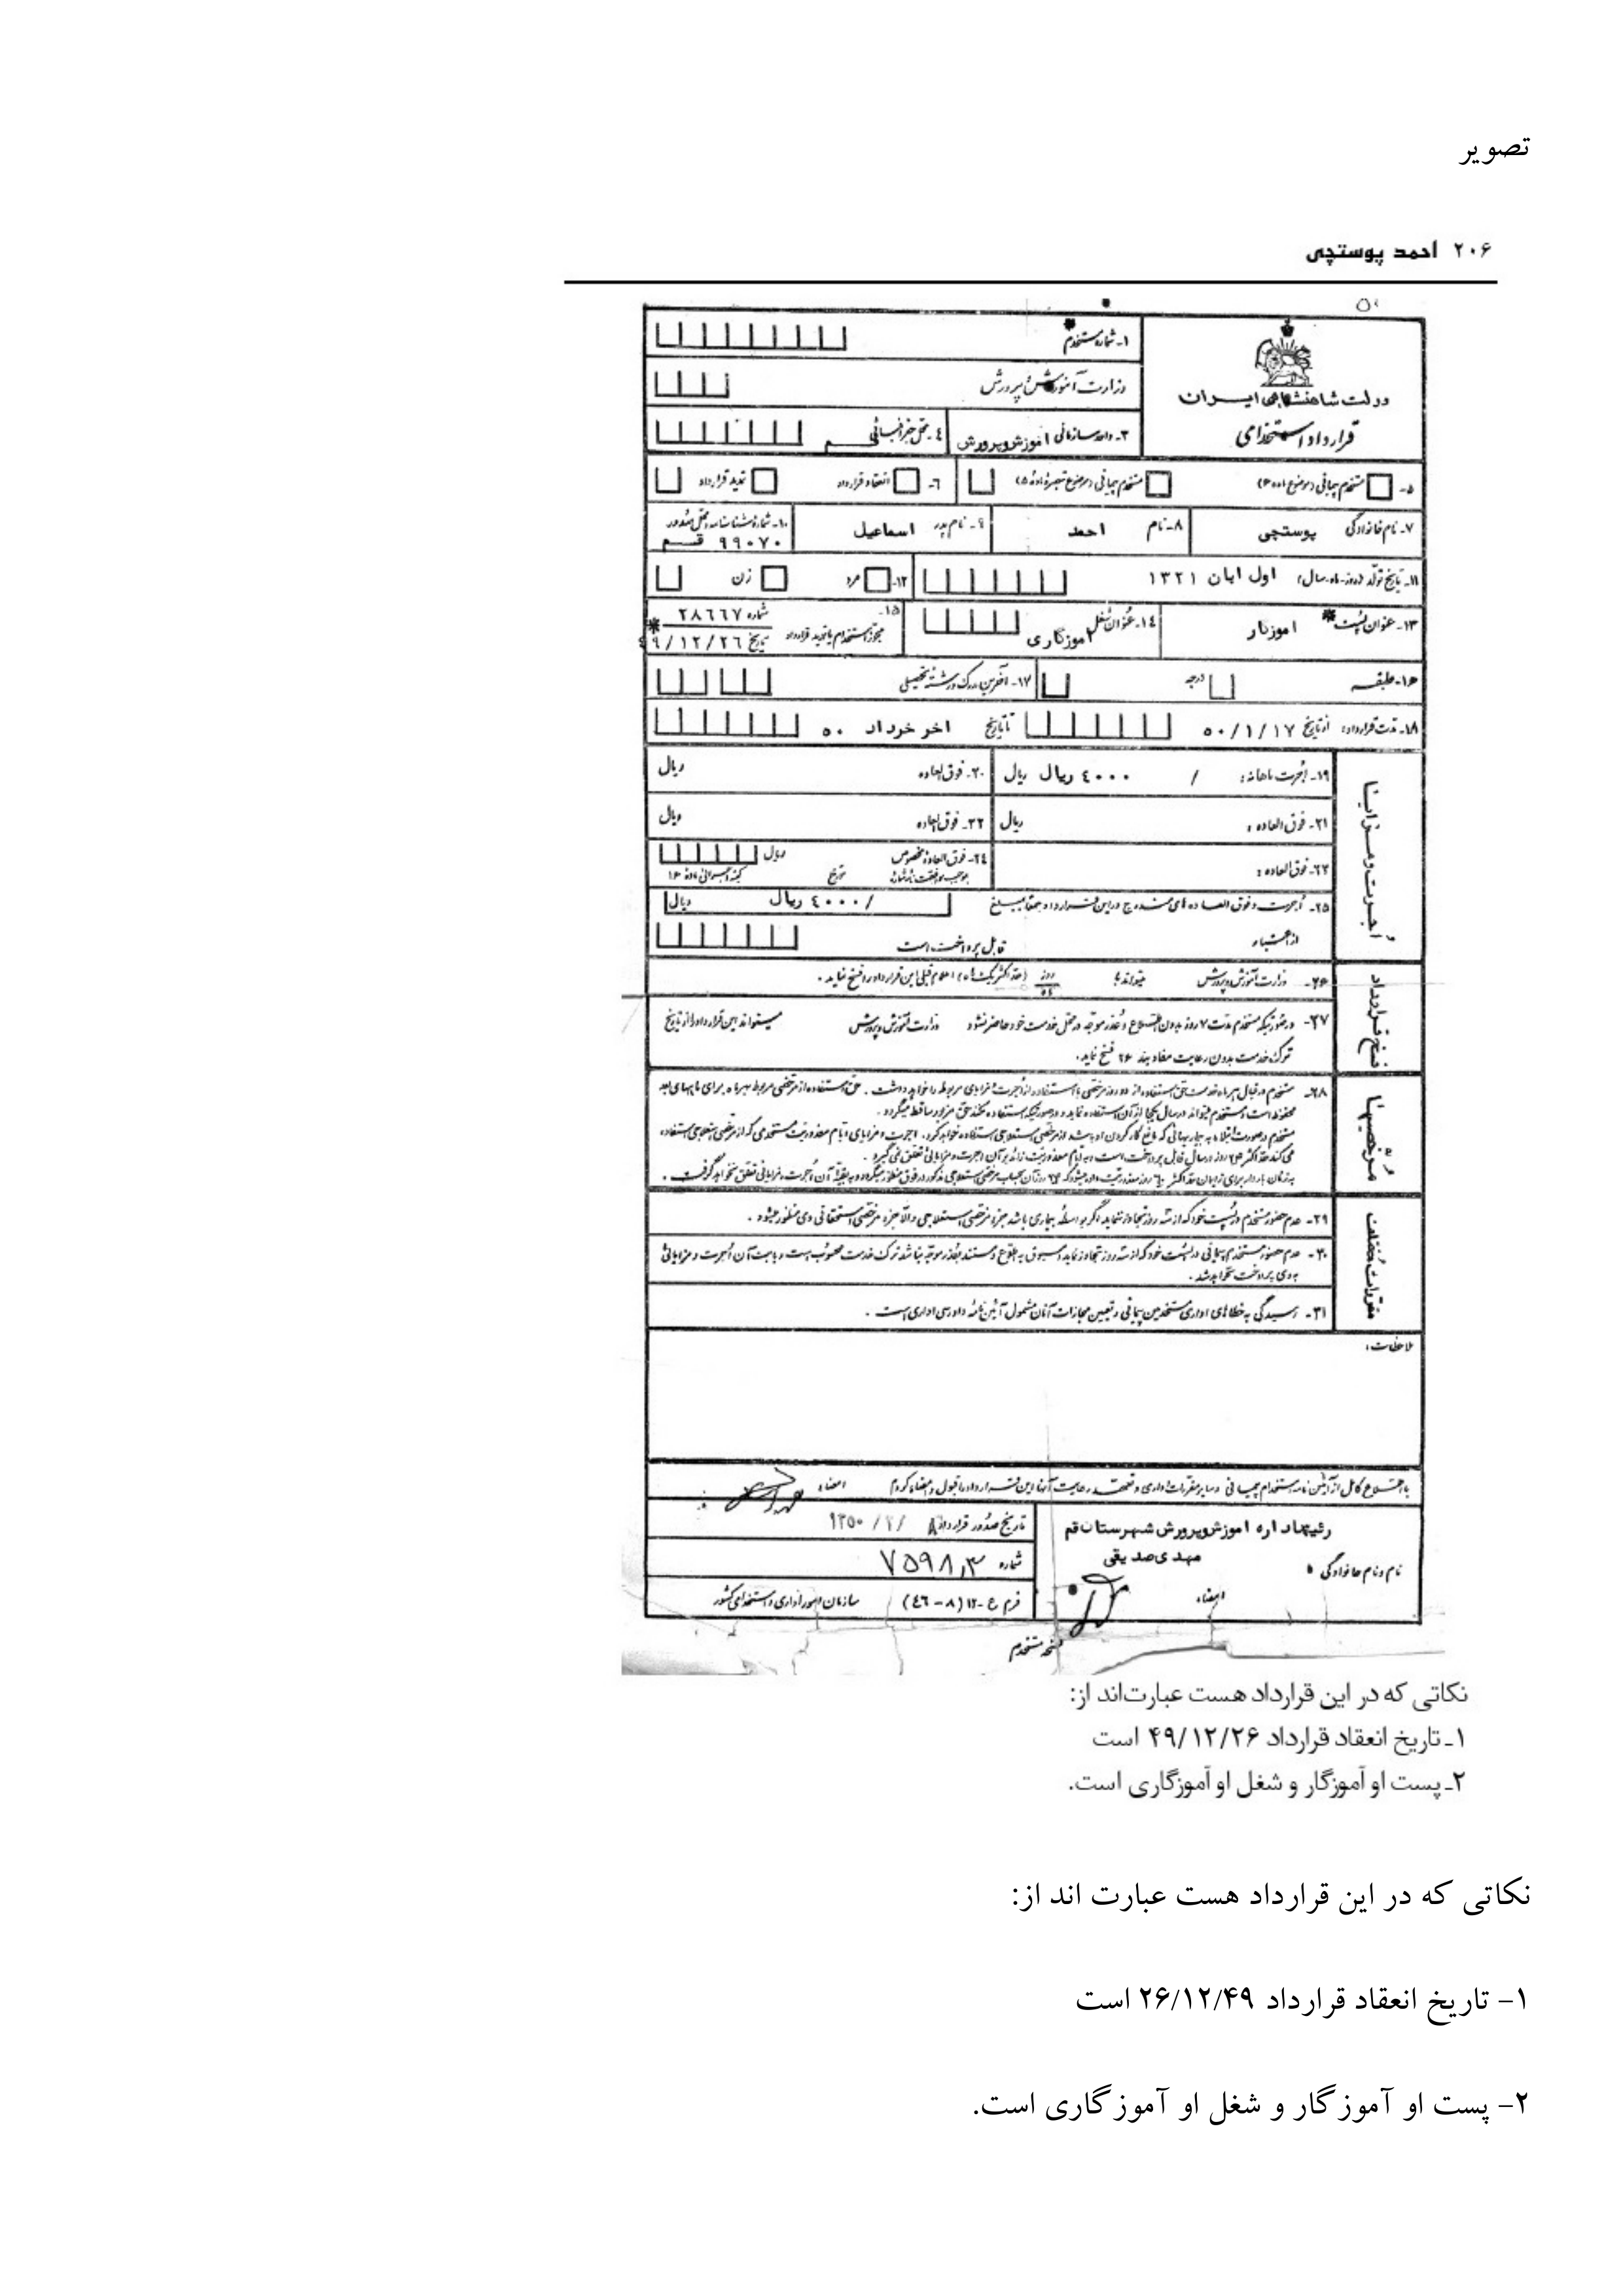 تصویر
۲۰۶ احمد پوستچی
دولت شاهنشاهی ایران
قرارداد استخدامی
۱- شماره مستخدم
وزارت آموزش و پرورش
۳- واحد سازمانی آموزش و پرورش
۴- محل جغرافیائی قم
۵- مستخدم پیمانی (موضوع ماده ۴) مستخدم پیمانی (موضوع تبصره ماده ۵)
۶- انعقاد قرارداد تمدید قرارداد
۷- نام خانوادگی پوستچی
۸- نام احمد
۹- نام پدر اسماعیل
۱۰- شماره شناسنامه و محل صدور
۹۹۰۷۰ قم
۱۱- تاریخ تولد (روز-ماه-سال) اول ابان ۱۳۲۱
۱۲- مرد زن
۱۳- عنوان پست اموزگار
۱۴- عنوان شغل اموزگاری
۱۵- مجوز استخدام یا تمدید قرارداد شماره ۲۸۶۶۷
تاریخ ۴۹/۱۲/۲۶
۱۶- طبقه درجه
۱۷- آخرین مدرک و رشته تحصیلی
۱۸- مدت قرارداد: از تاریخ ۵۰/۱/۱۷ تا تاریخ اخر خرداد ۵۰
اجرت و مزایا
۱۹- اجرت ماهانه: / ۴۰۰۰ ریال ریال
۲۰- فوق العاده ریال
۲۱- فوق العاده: ریال
۲۲- فوق العاده ریال
۲۳- فوق العاده:
۲۴- فوق العاده مخصوص ریال
۲۵- اجرت و فوق العاده های مندرج در این قرارداد جمعا بمبلغ /۴۰۰۰ ریال ریال
از اعتبار قابل پرداخت است
فسخ قرارداد
۲۶- وزارت آموزش و پرورش میتواند با روز (حداکثر یکماه) اعلام قبلی این قرارداد را فسخ نماید.
۲۷- در صورتیکه مستخدم مدت ۷ روز بدون اطلاع و عذر موجه در محل خدمت خود حاضر نشود وزارت آموزش و پرورش میتواند این قرارداد را از تاریخ
ترک خدمت بدون رعایت مفاد بند ۲۶ فسخ نماید.
مرخصیها
مقررات مختلف
۲۹- عدم حضور مستخدم در پست خود که از سه روز تجاوز ننماید اگر بواسطه بیماری باشد جزء مرخصی استعلاجی والا جزء مرخصی استحقاقی وی منظور میشود.
۳۰- عدم حضور مستخدم پیمانی در پست خود که از سه روز تجاوز نماید و مسبوق به اطلاع و مستند بعذر موجه نباشد ترک خدمت محسوب است و بابت آن اجرت و مزایائی
به وی پرداخت نخواهد شد.
۳۱- رسیدگی به خطاهای اداری مستخدمین پیمانی و تعیین مجازات آنان مشمول آئین نامه دادرسی اداری است.
ملاحظات:
با اطلاع کامل از آئین نامه استخدام پیمانی و سایر مقررات اداری و تعهد رعایت آنها این قرارداد را قبول و امضاء کردم امضاء
رئیس اداره اموزش و پرورش شهرستان قم
نام و نام خانوادگی مهدی صدیقی
امضاء
تاریخ صدور قرارداد
شماره ۷۵۹۸٫۳
فرم ع-۱۲ (۸-۴۶) سازمان امور اداری و استخدامی کشور
نسخه مستخدم
نکاتی که در این قرارداد هست عبارت‌اند از:
۱ـ تاریخ انعقاد قرارداد ۴۹/۱۲/۲۶ است
۲ـ پست او آموزگار و شغل او آموزگاری است.
نکاتی که در این قرارداد هست عبارت اند از:
۱- تاریخ انعقاد قرارداد ۲۶/۱۲/۴۹ است
۲- پست او آموزگار و شغل او آموزگاری است.